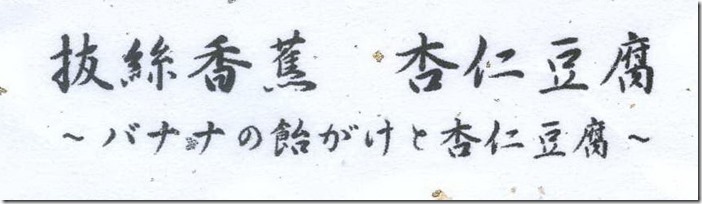 抜絲香蕉　杏仁豆腐
～バナナの飴がけと杏仁豆腐～